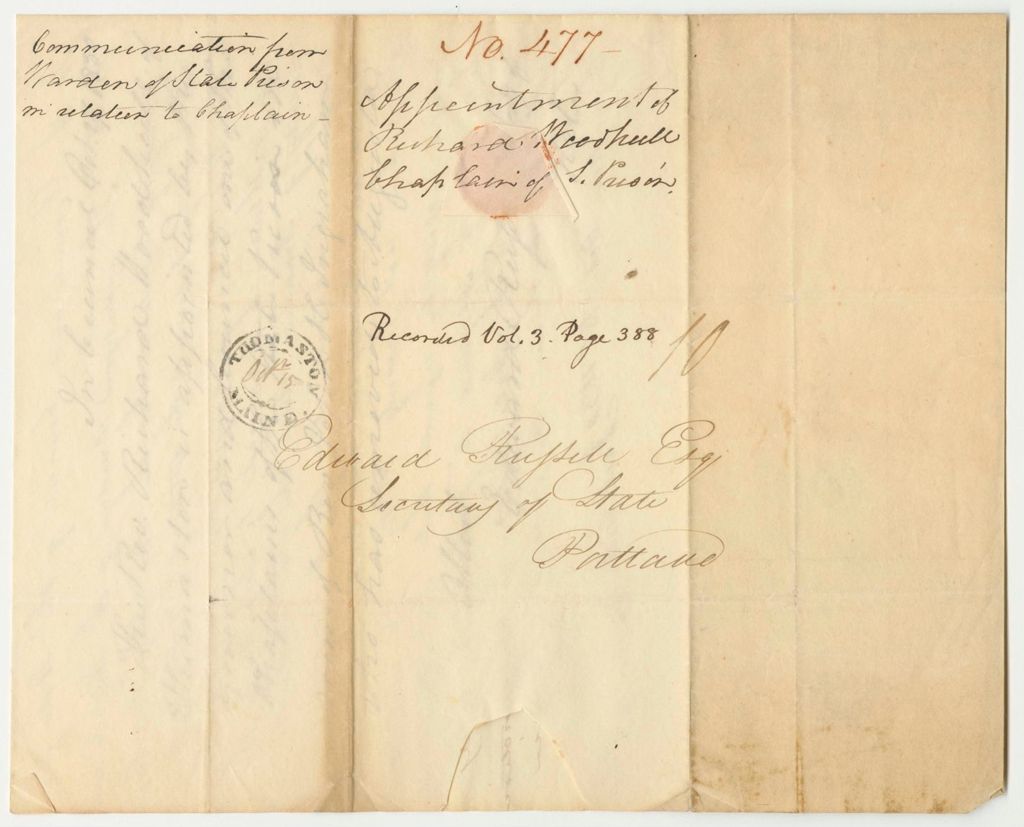 Communication from
Warden of State Prison
in relation to Chaplain -
No. 477 -
Appointment of
Richard Woodhull
Chaplain of S. Prison.
Recorded Vol. 3. Page 388
10
THOMASTON
Oct 15
MAINE.
Edward Russell Esq
Secretary of State
Portland